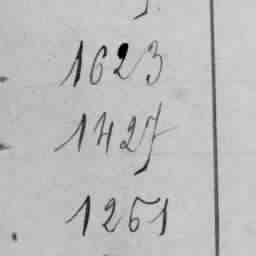 1623
1427
1251